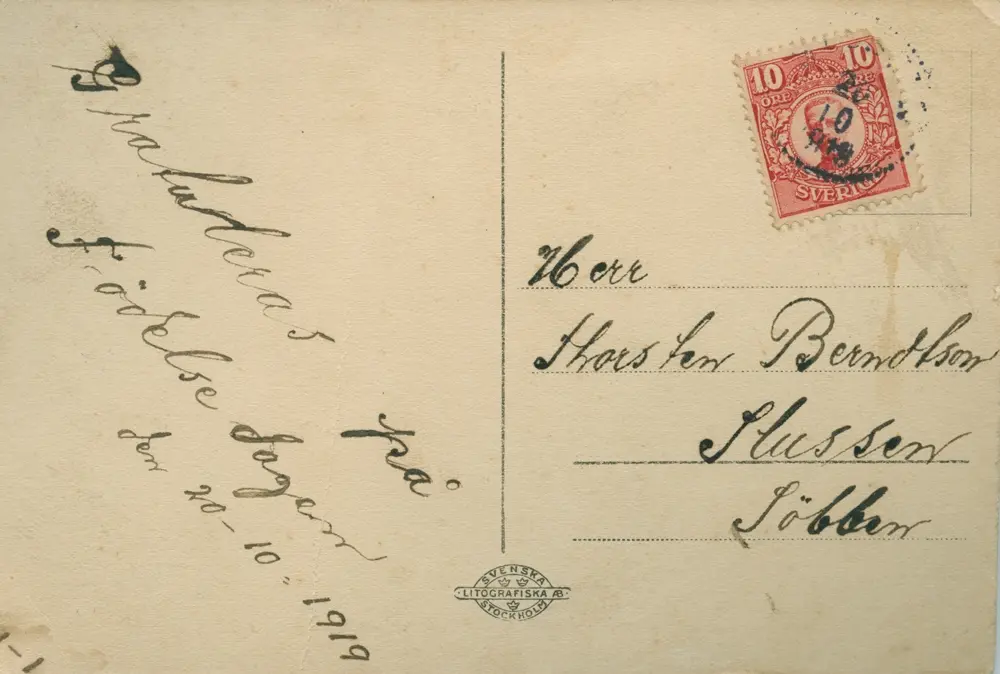 Gratuleras
på
Födelse dagen
den 20-10" 1919
10 10
ÖRE ÖRE
SVERIGE
20
10
Herr
Thorsten Berndtson
Slussen
Söbben
SVENSKA
LITOGRAFISKA AB
STOCKHOLM